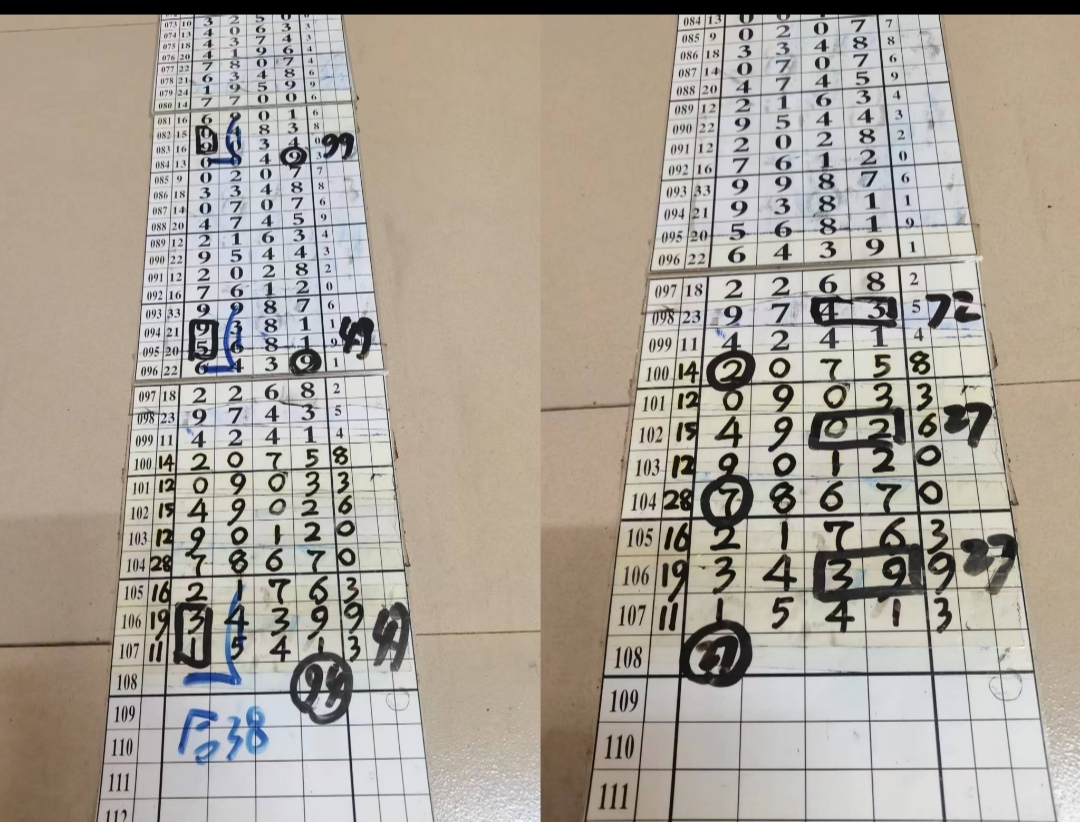 073 10 3 2 5 0
074 13 4 0 6 3 3
075 18 4 3 7 4 3
076 20 4 1 9 6 4
077 22 7 8 0 7 4
078 21 6 3 4 8 6
079 24 1 9 5 9 9
080 14 7 7 0 0 6
081 16 6 9 0 1 6
082 15 0 4 8 3 8
083 16 9 3 4 0 99
084 13 0 9 4 9 3
085 9 0 2 0 7 7
086 18 3 3 4 8 8
087 14 0 7 0 7 6
088 20 4 7 4 5 9
089 12 2 1 6 3 4
090 22 9 5 4 4 3
091 12 2 0 2 8 2
092 16 7 6 1 2 0
093 33 9 9 8 7 6
094 21 9 3 8 1 1 49
095 20 5 6 8 1 9
096 22 6 4 3 9 1
097 18 2 2 6 8 2
098 23 9 7 4 3 5
099 11 4 2 4 1 4
100 14 2 0 7 5 8
101 12 0 9 0 3 3
102 15 4 9 0 2 6
103 12 9 0 1 2 0
104 28 7 8 6 7 0
105 16 2 1 7 6 3
106 19 3 4 3 9 9 49
107 11 1 5 4 1 3
108 94
109
110 38
111
112
084 13
085 9 0 2 0 7 7
086 18 3 3 4 8 8
087 14 0 7 0 7 6
088 20 4 7 4 5 9
089 12 2 1 6 3 4
090 22 9 5 4 4 3
091 12 2 0 2 8 2
092 16 7 6 1 2 0
093 33 9 9 8 7 6
094 21 9 3 8 1 1
095 20 5 6 8 1 9
096 22 6 4 3 9 1
097 18 2 2 6 8 2
098 23 9 7 4 3 5 72
099 11 4 2 4 1 4
100 14 2 0 7 5 8
101 12 0 9 0 3 3
102 15 4 9 0 2 6 27
103 12 9 0 1 2 0
104 28 7 8 6 7 0
105 16 2 1 7 6 3
106 19 3 4 3 9 9 27
107 11 1 5 4 1 3
108 27
109
110
111